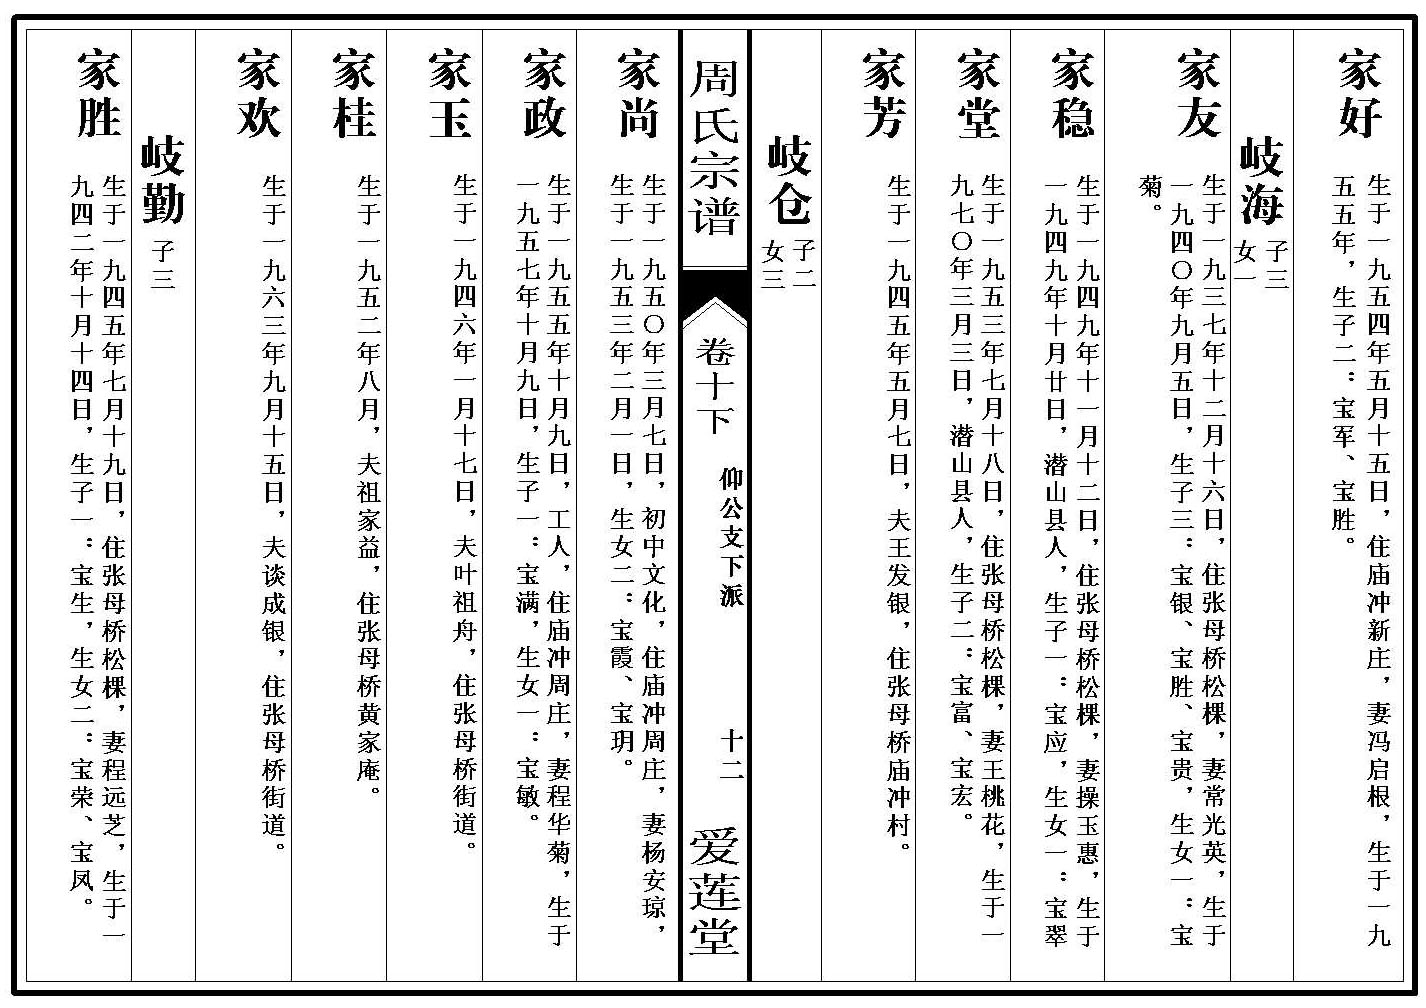 家好
生于一九五四年五月十五日，住庙冲新庄，妻冯启根，生于一九
五五年，生子二：宝军、宝胜。
岐海
子三
女一
家友
生于一九三七年十二月十六日，住张母桥松棵，妻常光英，生于
一九四〇年九月五日，生子三：宝银、宝胜、宝贵，生女一：宝
菊。
家稳
生于一九四九年十一月十二日，住张母桥松棵，妻操玉惠，生于
一九四九年十月廿日，潜山县人，生子一：宝应，生女一：宝翠
家堂
生于一九五三年七月十八日，住张母桥松棵，妻王桃花，生于一
九七〇年三月三日，潜山县人，生子二：宝富、宝宏。
家芳
生于一九四五年五月七日，夫王发银，住张母桥庙冲村。
岐仓
子二
女三
周氏宗谱
卷十下
仰公支下派
十二
爱莲堂
家尚
生于一九五〇年三月七日，初中文化，住庙冲周庄，妻杨安琼，
生于一九五三年二月一日，生女二：宝霞、宝玥。
家政
生于一九五五年十月九日，工人，住庙冲周庄，妻程华菊，生于
一九五七年十月九日，生子一：宝满，生女一：宝敏。
家玉
生于一九四六年一月十七日，夫叶祖舟，住张母桥街道。
家桂
生于一九五二年八月，夫祖家益，住张母桥黄家庵。
家欢
生于一九六三年九月十五日，夫谈成银，住张母桥街道。
岐勤
子三
家胜
生于一九四五年七月十九日，住张母桥松棵，妻程远芝，生于一
九四二年十月十四日，生子一：宝生，生女二：宝荣、宝凤。